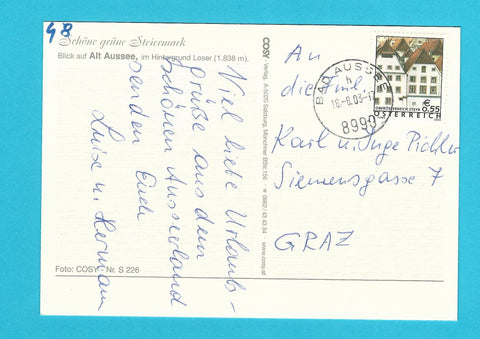 48
Schöne grüne Steiermark
Blick auf Alt Aussee, im Hintergrund Loser (1.838 m).
Viel liebe Urlaubs-
grüße aus dem
schönen Ausseerland
senden Euch
Luise u. Hermann
Foto: COSY - Nr. S 226
COSY Verlag A-5020 Salzburg, Münchner BSt. 156 0662 / 43 43 34 www.cosy.at
An
die Fml.
Karl u. Inge Pichler
Siemensgasse 7
GRAZ
BAD AUSSEE
h
10-8.03-
8990
€ 0,55
OBERÖSTERREICH STEYR
ÖSTERREICH